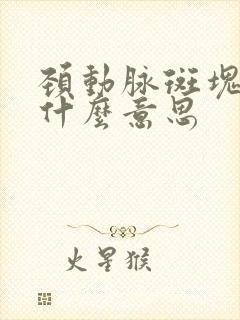 頚動脉斑塊
什麼意思
火星猴